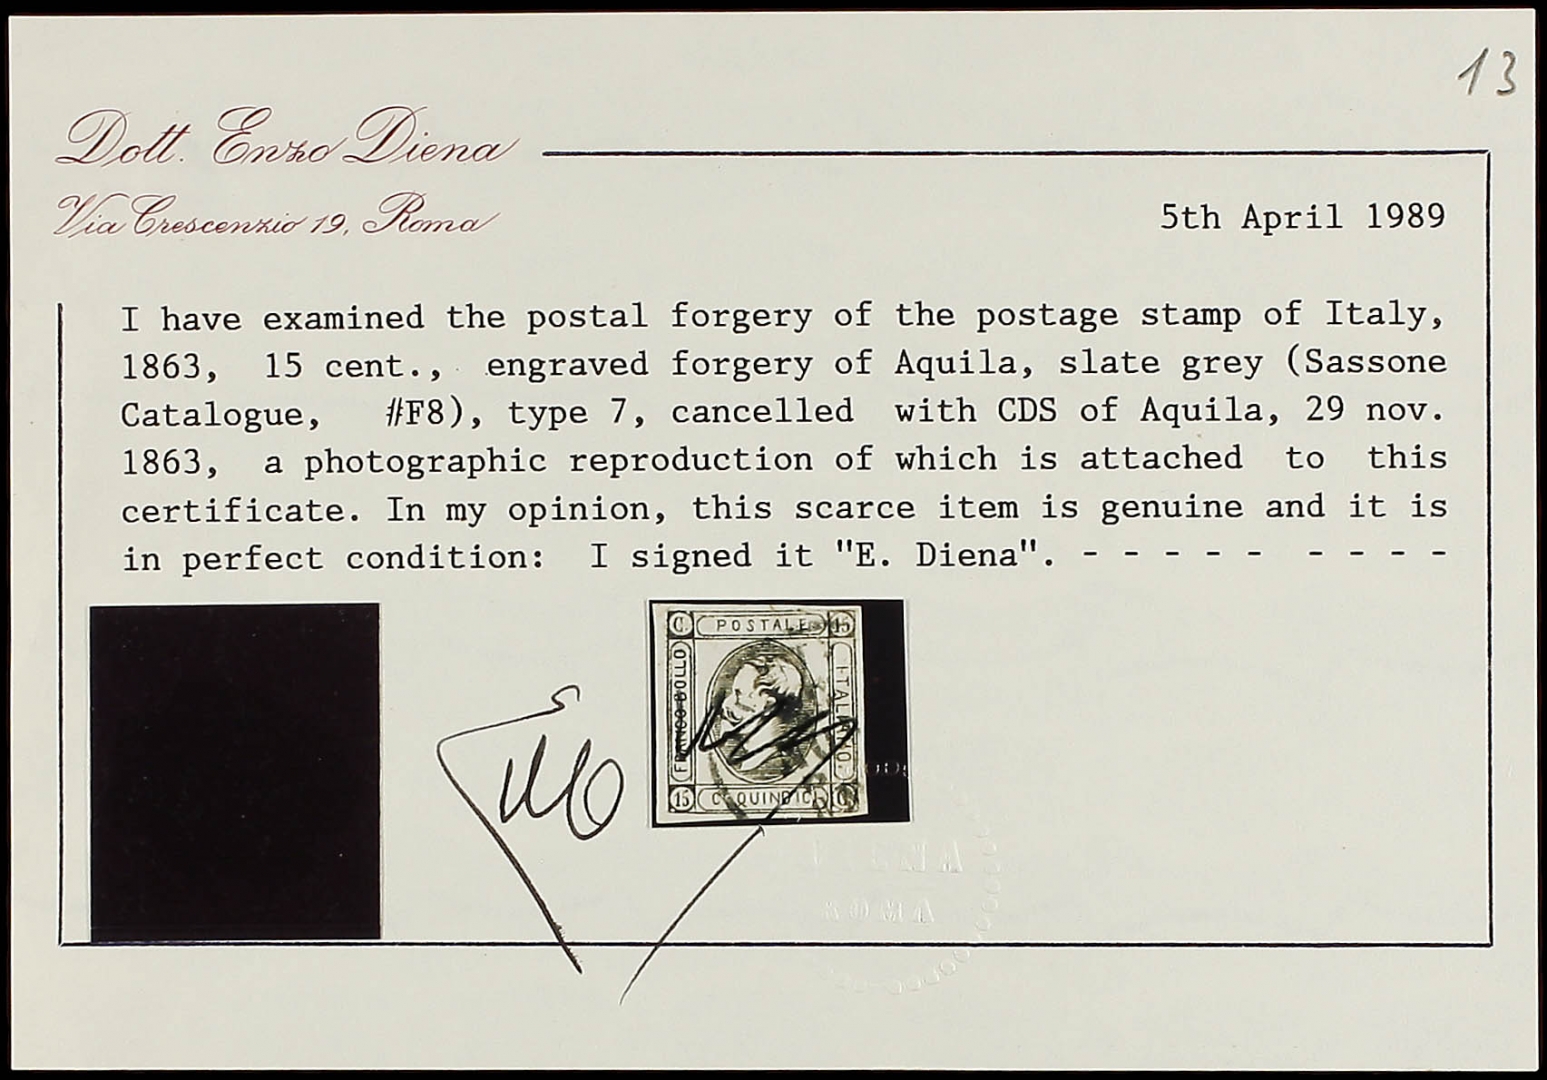 13
Dott. Enzo Diena
Via Crescenzio 19, Roma
5th April 1989
I have examined the postal forgery of the postage stamp of Italy,
1863, 15 cent., engraved forgery of Aquila, slate grey (Sassone
Catalogue, #F8), type 7, cancelled with CDS of Aquila, 29 nov.
1863, a photographic reproduction of which is attached to this
certificate. In my opinion, this scarce item is genuine and it is
in perfect condition: I signed it "E. Diena". - - - - - - - - -
C. POSTALE 15
FRANCO BOLLO
ITALIANO.
15 C. QUINDICI C.